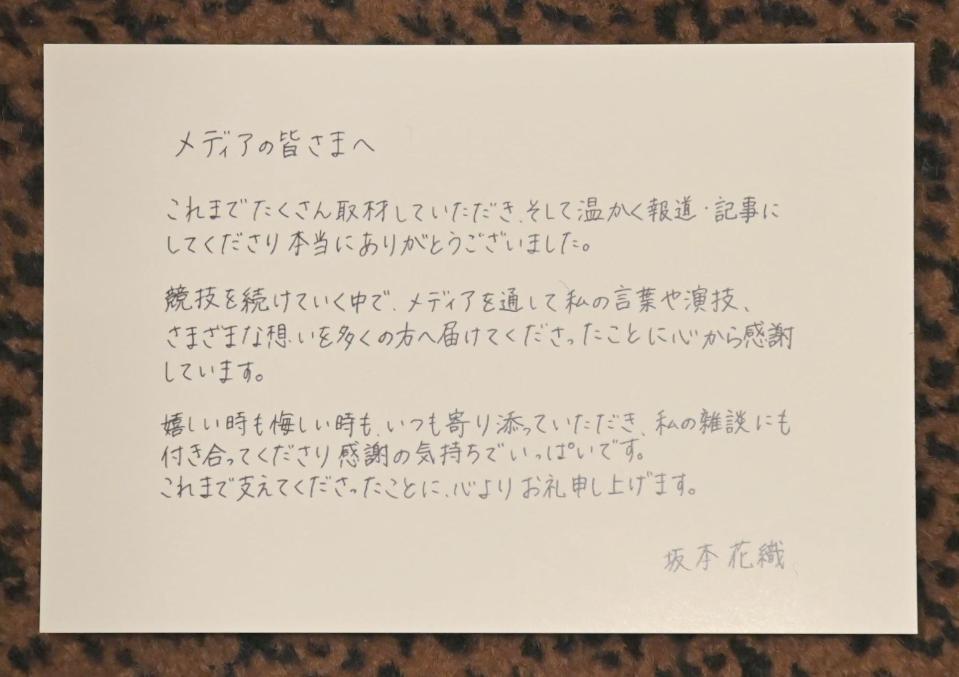 メディアの皆さまへ
これまでたくさん取材していただき、そして温かく報道・記事に
してくださり本当にありがとうございました。
競技を続けていく中で、メディアを通して私の言葉や演技、
さまざまな想いを多くの方へ届けてくださったことに心から感謝
しています。
嬉しい時も悔しい時も、いつも寄り添っていただき、私の雑談にも
付き合ってくださり感謝の気持ちでいっぱいです。
これまで支えてくださったことに、心よりお礼申し上げます。
坂本花織